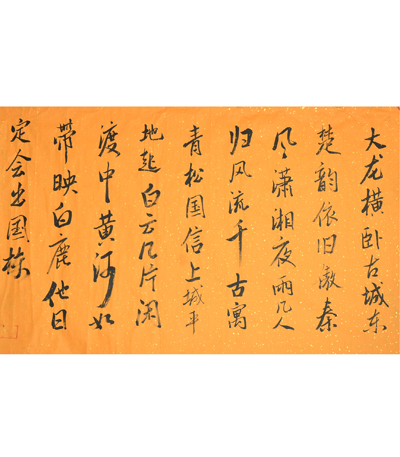 大龙横卧古城东
楚韵依旧激秦
风潇湘夜雨几人
归风流千古寓
青松国信上城平
地起白云几片闲
渡中黄河如
带映白鹿他日
定会出国栋